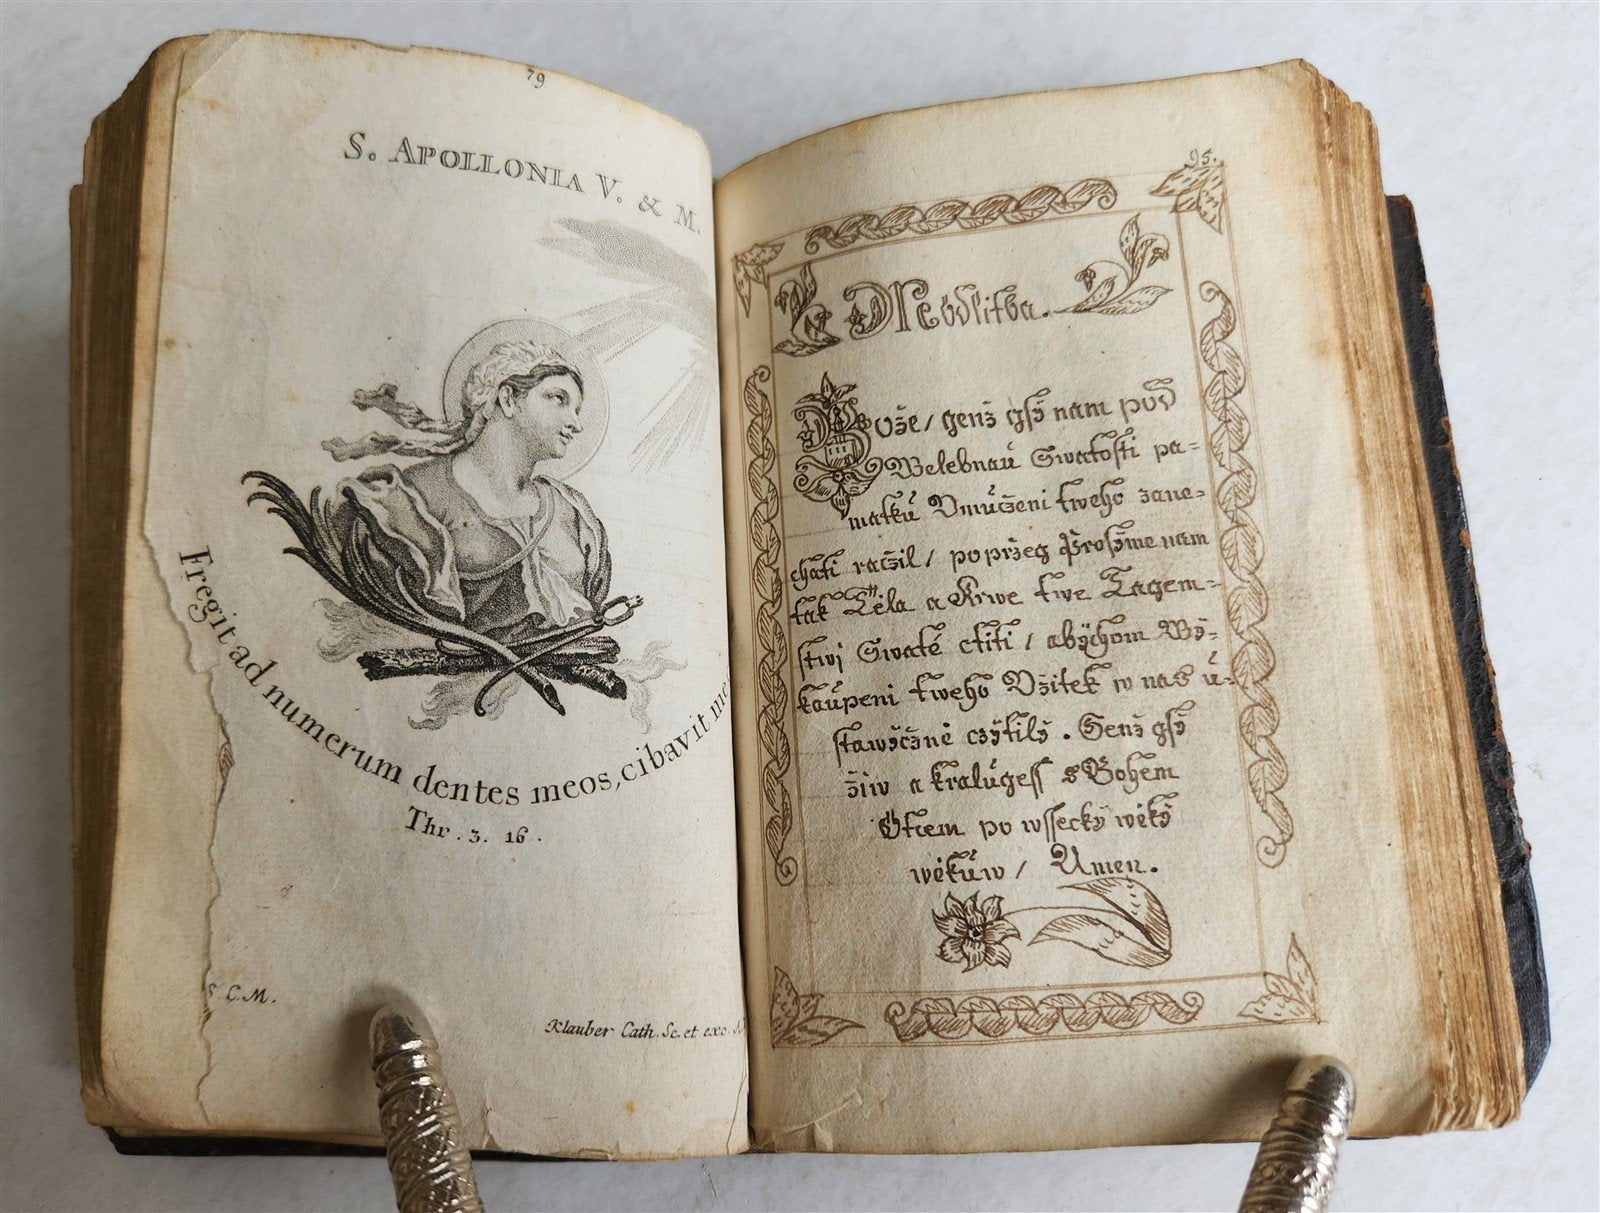 79
S. APOLLONIA V. & M.
Fregit ad numerum dentes meos, cibavit me
Thr. 3. 16.
S. C. M.
Klauber Cath. Sc. et exc.
95.
Modlitba.
Bože / genž gsÿ nam pod
Welebnaú Swatosti pa-
matkú Vmúčženi tweho zane-
chati račžil / popržeg Prosÿme nam
tak Těla a Krwe twe Tagem-
stwj Swaté ctiti / abÿchom Wÿ-
kaupeni tweho Vžitek w nas ú-
stawÿčžně czÿtilÿ. Genž gsÿ
žiw a kralúgess s Bohem
Otcem po wsseckÿ wěkÿ
wěkúw / Amen.